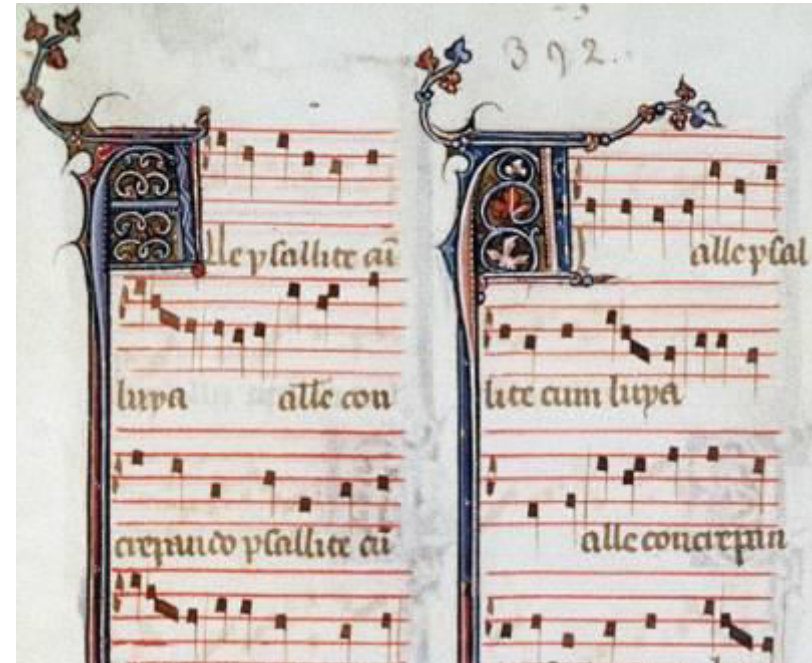 392.
Alle psallite cū
luya alle con
crepando psallite cū
Alle psal
lite cum luya
alle concrepan